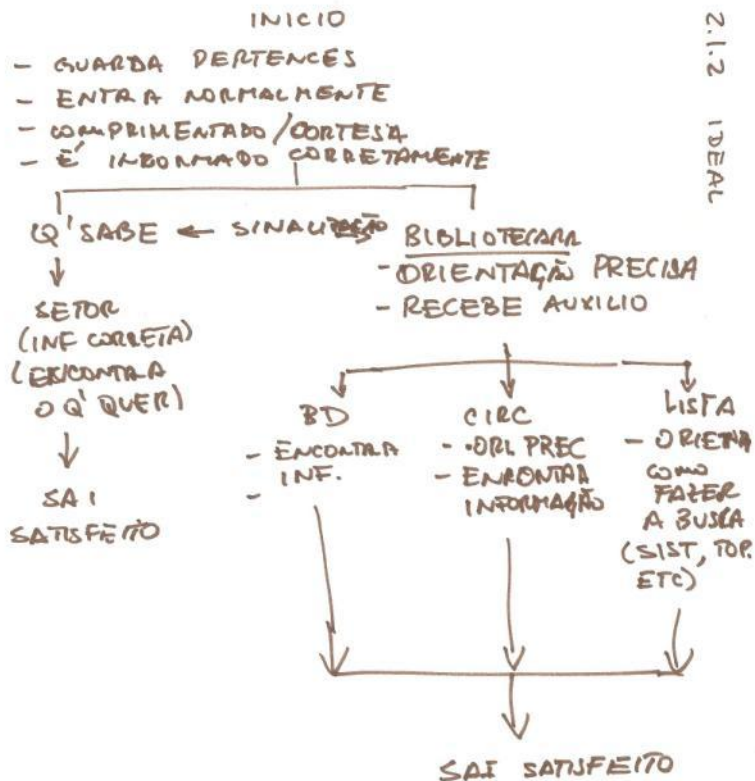 2.1.2 IDEAL
INICIO
- GUARDA PERTENCES
- ENTRA NORMALMENTE
- COMPRIMENTADO/CORTESA
- É INFORMADO CORRETAMENTE
Q' SABE ← SINALIZAÇÃO → BIBLIOTECARA
- ORIENTAÇÃO PRECISA
- RECEBE AUXILIO
SETOR
(INF CORRETA)
(ENCONTRA
O Q' QUER)
SAI
SATISFEITO
BD
- ENCONTRA
INF.
-
CIRC
- ORI PREC
- ENRONTRA
INFORMAÇÃO
LISTA
- ORIETA
COMO
FAZER
A BUSCA
(SIST, TOP.
ETC)
SAI SATISFEITO